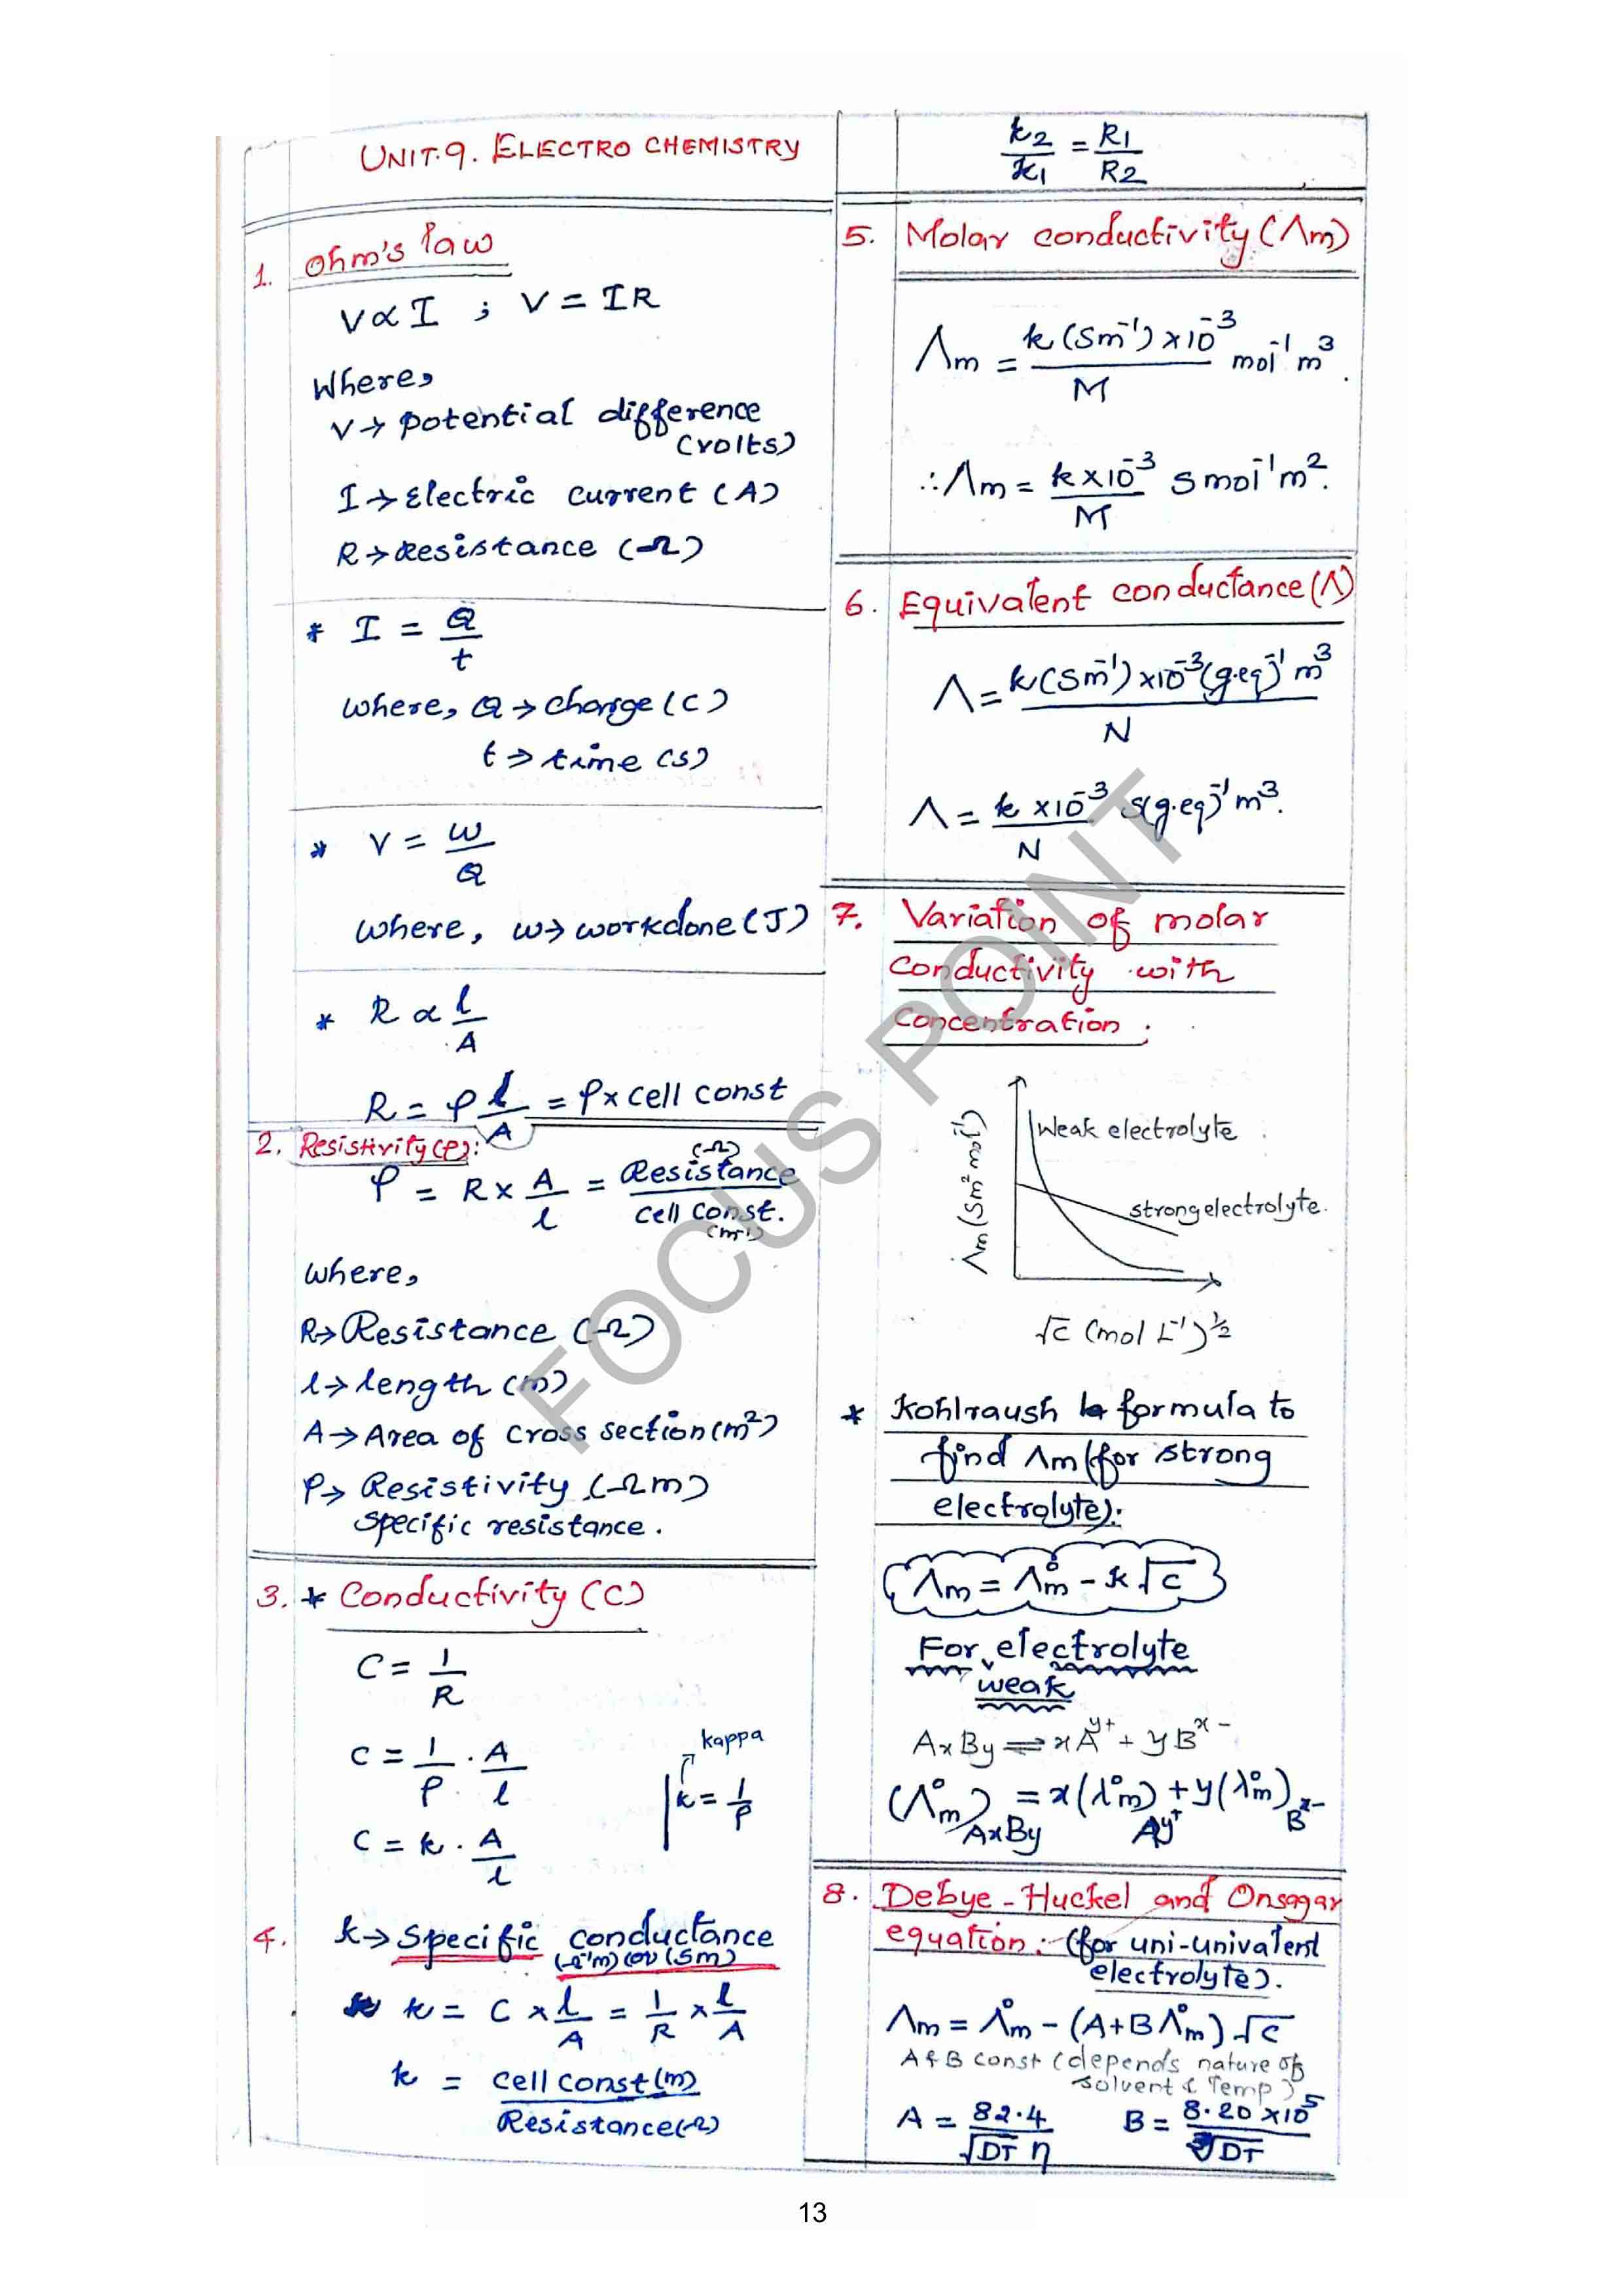 UNIT.9. ELECTRO CHEMISTRY
1. Ohm's law
V∝I ; V = IR
Where,
V→ potential difference
(volts)
I→ Electric current (A)
R→ Resistance (Ω)
* I = Q/t
where, Q→ charge (C)
t→ time (s)
* V = W/Q
where, W→ workdone (J)
* R ∝ l/A
R = ρ l/A = ρ x cell const
2. Resistivity (ρ):
ρ = R x A/l = Resistance (Ω) / cell const. (m-1)
where,
R→ Resistance (Ω)
l→ length (m)
A→ Area of cross section (m²)
ρ→ Resistivity (Ωm)
specific resistance.
3. * Conductivity (C)
C = 1/R
C = 1/ρ . A/l
kappa
k = 1/ρ
C = k . A/l
4. k→ Specific conductance
(Ω⁻¹m) (or) (Sm)
k = C x l/A = 1/R x l/A
k = cell const (m) / Resistance (Ω)
k2/k1 = R1/R2
5. Molar conductivity (Λm)
Λm = k (Sm⁻¹) x10⁻³ / M mol⁻¹ m³.
∴ Λm = k x10⁻³ / M S mol⁻¹ m².
6. Equivalent conductance (Λ)
Λ = k (Sm⁻¹) x10⁻³ (g.eq)⁻¹ m³ / N
Λ = k x10⁻³ / N S(g.eq)⁻¹ m³.
7. Variation of molar
conductivity with
concentration.
Weak electrolyte
strong electrolyte.
Λm (Sm² mol⁻¹)
√C (mol L⁻¹)½
* Kohlraush formula to
find Λm (for strong
electrolyte):
Λm = Λ°m - k√C
For electrolyte
weak
AxBy ⇌ xA^y+ + yB^x-
(Λ°m)AxBy = x(λ°m)A^y+ + y(λ°m)B^x-
8. Debye-Huckel and Onsagar
equation: (for uni-univalent
electrolyte).
Λm = Λ°m - (A+BΛ°m)√C
A & B const (depends nature of
solvent & Temp)
A = 82.4 / √DT η B = 8.20 x10⁵ / ³√DT
FOCUS POINT
13